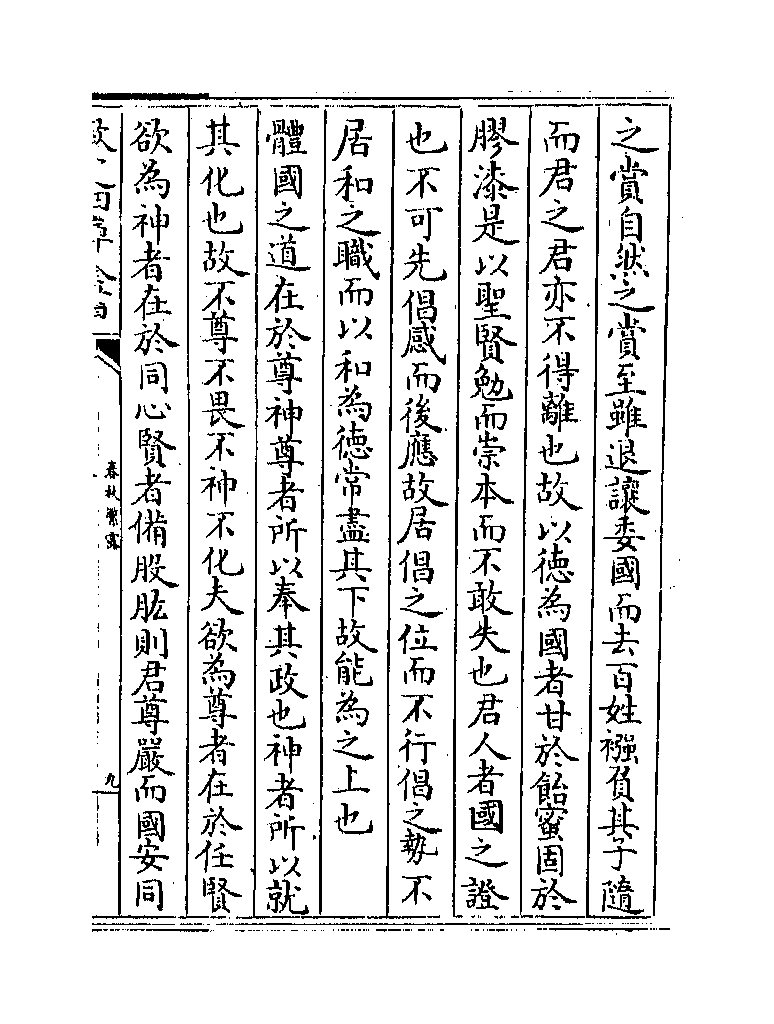 之賞自然之賞至雖退讓委國而去百姓襁負其子隨
而君之君亦不得離也故以徳為國者甘於飴蜜固於
膠漆是以聖賢勉而崇本而不敢失也君人者國之證
也不可先倡感而後應故居倡之位而不行倡之勢不
居和之職而以和為徳常盡其下故能為之上也
體國之道在於尊神尊者所以奉其政也神者所以就
其化也故不尊不畏不神不化夫欲為尊者在於任賢
欲為神者在於同心賢者備股肱則君尊嚴而國安同
春秋繁露
九